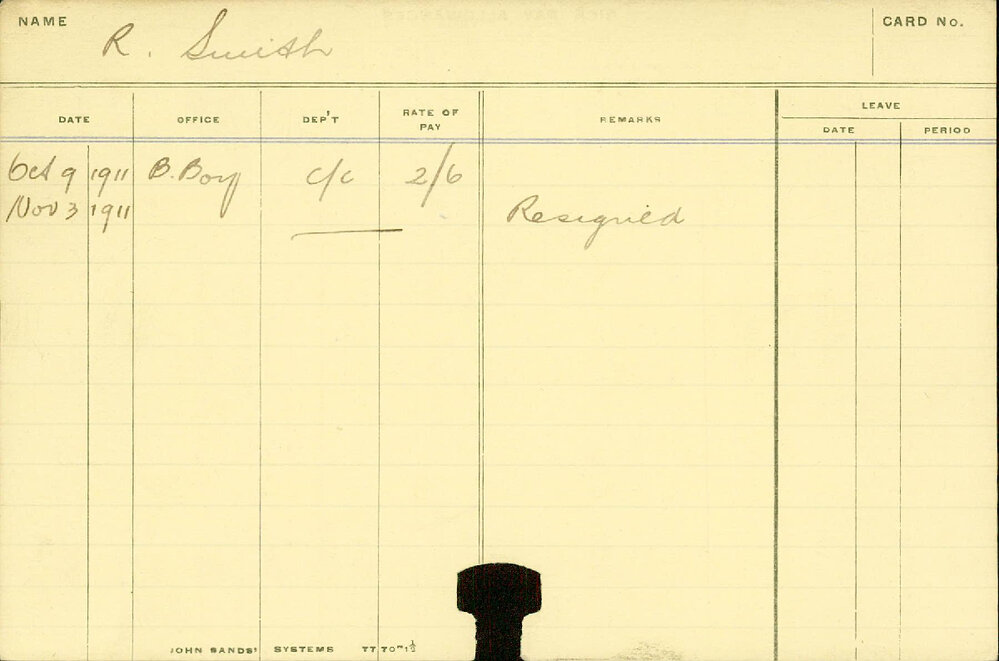 NAME R. Smith CARD No.
DATE OFFICE DEP'T RATE OF PAY REMARKS LEAVE
DATE PERIOD
Oct 9 1911 B. Boy C/C 2/6
Nov 3 1911 Resigned
JOHN SANDS' SYSTEMS